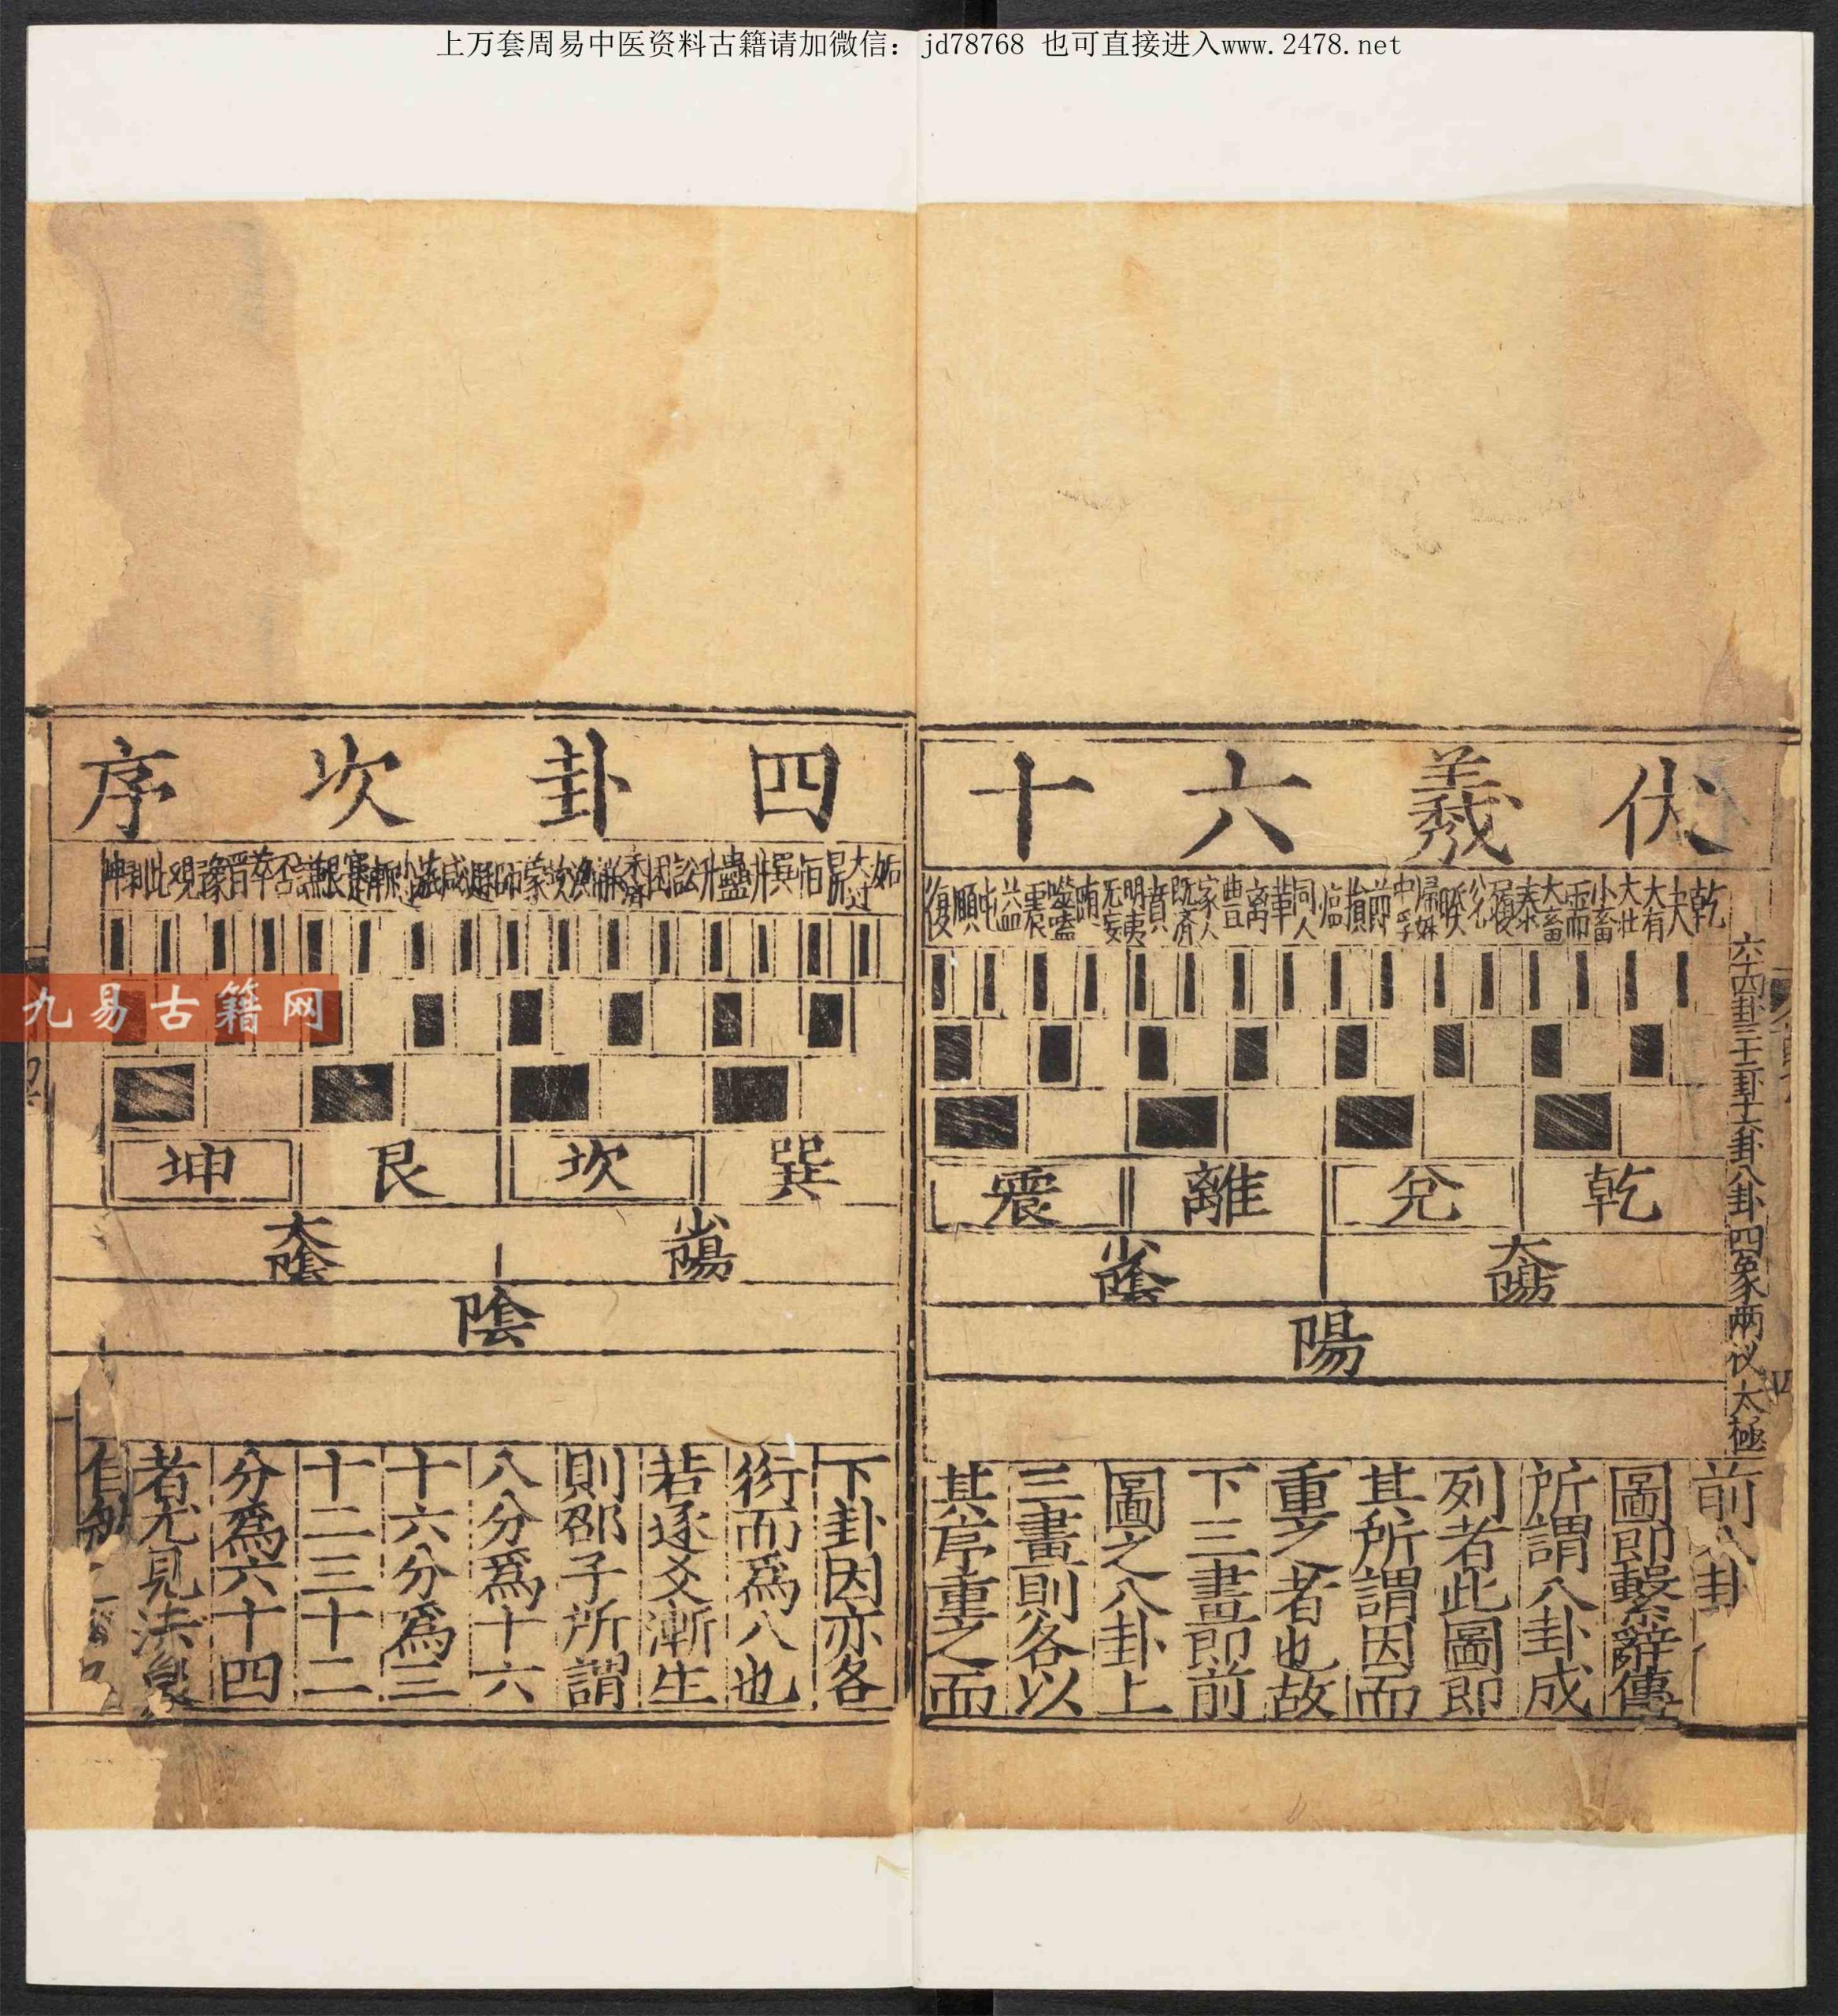 上万套周易中医资料古籍请加微信： jd78768 也可直接进入www.2478.net
伏羲六十
乾夬大有大壮小畜需大畜泰履兊睽歸妹中孚節損臨同人革離豐家人既済賁明夷无妄隨噬嗑震益屯頤復
六十四卦三十二卦十六卦八卦四象兩仪太極
乾兊離震
太陽少陰
陽
前八卦
圖即繫辭傳
所謂八卦成
列者此圖即
其所謂因而
重之者也故
下三畫即前
圖之八卦上
三畫則各以
其序重之而
四卦次序
姤大过鼎恒巽井蠱升訟困未濟解渙坎蒙師遯咸旅小过漸蹇艮謙否萃晋豫觀比剝坤
巽坎艮坤
少陽太陰
陰
下卦因亦各
衍而爲八也
若逐爻漸生
則邵子所謂
八分爲十六
十六分爲三
十二三十二
分爲六十四
者尤見法象
自
九易古籍网